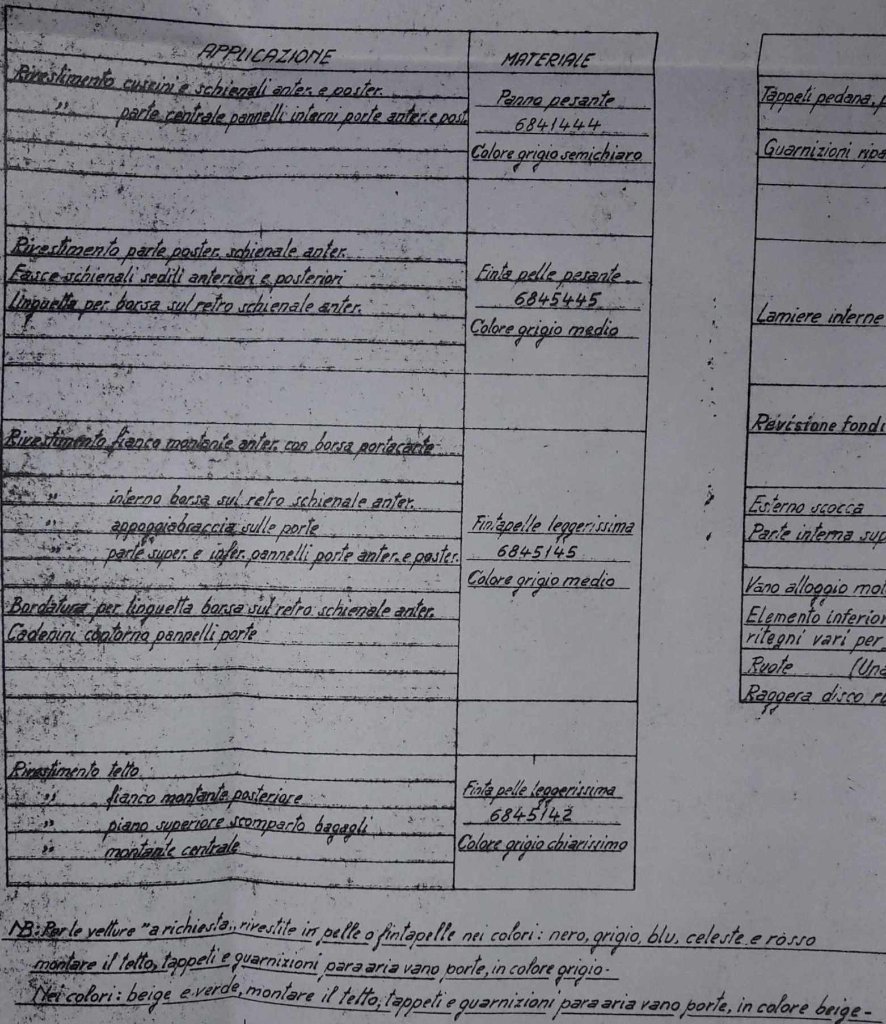 APPLICAZIONE
MATERIALE
Rivestimento cuscini e schienali anter. e poster.
" parte centrale pannelli interni porte anter. e post
Panno pesante
6841444
Colore grigio semichiaro
Rivestimento parte poster. schienale anter.
Fasce schienali sedili anteriori e posteriori
Linguetta per borsa sul retro schienale anter.
Finta pelle pesante
6845445
Colore grigio medio
Rivestimento fianco montante anter. con borsa portacarte
" interno borsa sul retro schienale anter.
" appoggiabraccia sulle porte
" parte super. e infer. pannelli porte anter. e poster.
Bordatura per linguetta borsa sul retro schienale anter.
Cadenini contorno pannelli porte
Fintapelle leggerissima
6845145
Colore grigio medio
Rivestimento tetto
" fianco montante posteriore
" piano superiore scomparto bagagli
" montante centrale
Finta pelle leggerissima
6845142
Colore grigio chiarissimo
Tappeti pedana, p
Guarnizioni ripa
Lamiere interne
Revisione fondi
Esterno scocca
Parte interna sup
Vano alloggio mot
Elemento inferior
ritegni vari per
Ruote (Una
Raggera disco ru
NB: Per le vetture "a richiesta„ rivestite in pelle o fintapelle nei colori: nero, grigio, blu, celeste e rosso
montare il tetto, tappeti e guarnizioni para aria vano porte, in colore grigio-
Nei colori: beige e verde, montare il tetto, tappeti e guarnizioni para aria vano porte, in colore beige-